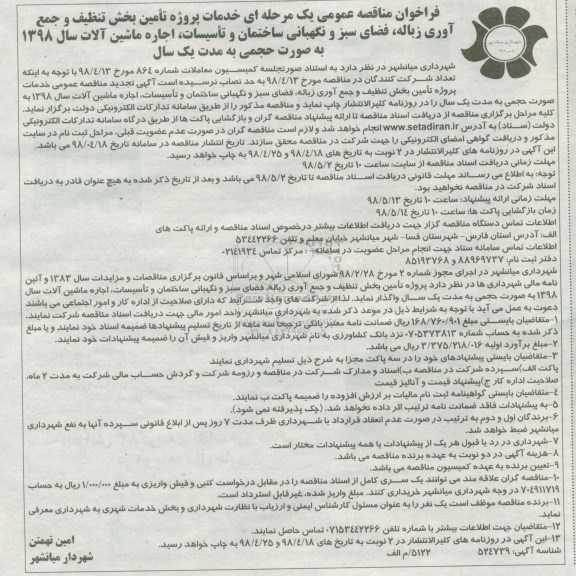 فراخوان مناقصه عمومی یک مرحله ای خدمات پروژه تأمین بخش تنظیف و جمع
آوری زباله، فضای سبز و نگهبانی ساختمان و تأسیسات، اجاره ماشین آلات سال ۱۳۹۸
به صورت حجمی به مدت یک سال
شهرداری میانشهر در نظر دارد به استناد صورتجلسه کمیسیون معاملات شماره ۸۶۴ مورخ ۹۸/۴/۱۳ با توجه به اینکه
تعداد شرکت کنندگان در مناقصه مورخ ۹۸/۴/۱۳ به حد نصاب نرسیده است آگهی تجدید مناقصه عمومی خدمات
پروژه تأمین بخش تنظیف و جمع آوری زباله، فضای سبز و نگهبانی ساختمان و تأسیسات، اجاره ماشین آلات سال ۱۳۹۸ به
صورت حجمی به مدت یک سال را در روزنامه کثیرالانتشار چاپ نماید و مناقصه مذکور را از طریق سامانه تدارکات الکترونیکی دولت برگزار نماید.
کلیه مراحل برگزاری مناقصه از دریافت اسناد مناقصه تا ارائه پیشنهاد مناقصه گران و بازگشایی پاکت ها از طریق درگاه سامانه تدارکات الکترونیکی
دولت (ستاد) به آدرس www.setadiran.ir انجام خواهد شد و لازم است مناقصه گران در صورت عدم عضویت قبلی، مراحل ثبت نام در سایت
مذکور و دریافت گواهی امضای الکترونیکی را جهت شرکت در مناقصه محقق سازند. تاریخ انتشار مناقصه در سامانه تاریخ ۹۸/۰۴/۱۸ می باشد.
این آگهی در روزنامه های کثیرالانتشار در ۲ نوبت به تاریخ های ۹۸/۴/۱۸ و ۹۸/۴/۲۵ به چاپ خواهد رسید.
مهلت زمانی دریافت اسناد مناقصه از سایت: ساعت ۱۰ تاریخ ۹۸/۵/۲
توجه: به اطلاع می رساند مهلت قانونی دریافت اسناد مناقصه تا تاریخ ۹۸/۵/۲ می باشد و بعد از تاریخ ذکر شده به هیچ عنوان قادر به دریافت
اسناد شرکت در مناقصه نخواهید بود.
مهلت زمانی ارائه پیشنهاد: ساعت ۱۰ تاریخ ۹۸/۵/۱۳
زمان بازگشایی پاکت ها: ساعت ۱۰ تاریخ ۹۸/۵/۱۴
اطلاعات تماس دستگاه مناقصه گزار جهت دریافت اطلاعات بیشتر درخصوص اسناد مناقصه و ارائه پاکت های
الف: آدرس استان فارس- شهرستان فسا- شهر میانشهر خیابان معلم و تلفن ۵۳۴۴۲۲۶۶
اطلاعات تماس سامانه ستاد جهت انجام مراحل عضویت در سامانه: مرکز تماس ۰۲۱۴۱۹۳۴
دفتر ثبت نام: ۸۸۹۶۹۷۳۷ و ۸۵۱۹۳۷۶۸
شهرداری میانشهر در اجرای مجوز شماره ۲ مورخ ۹۸/۲/۲۸ شورای اسلامی شهر و براساس قانون برگزاری مناقصات و مزایدات سال ۱۳۸۳ و آئین
نامه مالی شهرداری ها در نظر دارد پروژه تأمین بخش تنظیف و جمع آوری زباله، فضای سبز و نگهبانی ساختمان و تأسیسات، اجاره ماشین آلات سال
۱۳۹۸ به صورت حجمی به مدت یک سال واگذار نماید. لذا از شرکت های واجد شرایط که دارای صلاحیت از اداره کار و امور اجتماعی می باشند
دعوت به عمل می آید با توجه به شرایط ذیل در موعد ذکر شده به شهرداری میانشهر واحد امور مالی جهت دریافت اسناد مناقصه شرکت نمایند.
۱-متقاضیان بایستی مبلغ ۱۶۸/۷۶۰/۹۰۱ ریال ضمانت نامه معتبر بانکی ترجیحاً سه ماهه از تاریخ تسلیم پیشنهادها ضمیمه اسناد خود نمایند و یا مبلغ
ذکر شده به حساب شماره ۷۰۵۳۷۳۸۱۳ نزد بانک کشاورزی به نام شهرداری میانشهر واریز و فیش آن را ضمیمه پیشنهادات خود نمایند.
۲-مبلغ برآورد اولیه ۳/۳۷۵/۲۱۸/۰۱۶ ریال می باشد.
۳-متقاضیان بایستی پیشنهادهای خود را در سه پاکت مجزا به شرح ذیل تسلیم شهرداری نمایند
پاکت الف)سپرده شرکت در مناقصه ب)اسناد و مدارک شرکت در مناقصه و رزومه شرکت و گردش حساب مالی شرکت به مدت ۲ ماه،
صلاحیت اداره کار ج)پیشنهاد قیمت و آنالیز قیمت
۴-متقاضیان بایستی گواهینامه ثبت نام مالیات بر ارزش افزوده را ضمیمه پاکت ب نمایند.
۵-به پیشنهادات فاقد ضمانت نامه ترتیب اثر داده نخواهد شد. (چک پذیرفته نمی شود).
۶-برندگان اول و دوم به ترتیب در صورت عدم انعقاد قرارداد با شهرداری ظرف مدت ۷ روز پس از ابلاغ قانونی سپرده آنها به نفع شهرداری
میانشهر ضبط خواهد شد.
۷-شهرداری در رد یا قبول هر یک از پیشنهادات یا همه پیشنهادات مختار است.
۸-هزینه آگهی در دو نوبت به عهده برنده مناقصه می باشد.
۹-تعیین برنده به عهده کمیسیون مناقصه می باشد.
۱۰-مناقصه گران علاقه مند می توانند یک سری کامل از اسناد مناقصه را در مقابل درخواست کتبی و فیش واریزی به مبلغ ۱/۰۰۰/۰۰۰ ریال به حساب
۷۰۴۹۱۱۷۱۹ در وجه شهرداری میانشهر خریداری کنند. مبلغ واریز شده، غیرقابل استرداد است.
۱۱-برنده مناقصه موظف است یک نفر را به عنوان مسئول کارشناس ایمنی و ارزیاب با نظارت شهرداری و بخش خدمات شهری به شهرداری معرفی
نماید.
۱۲-متقاضیان جهت اطلاعات بیشتر با شماره تلفن ۰۷۱۵۳۴۴۲۲۶۶ تماس حاصل نمایند.
۱۳-این آگهی در روزنامه های کثیرالانتشار در ۲ نوبت به تاریخ های ۹۸/۴/۱۸ و ۹۸/۴/۲۵ به چاپ خواهد رسید.
شناسه آگهی: ۵۲۴۷۳۹ ۵۱۲۲/م الف
امین تهمتن
شهردار میانشهر